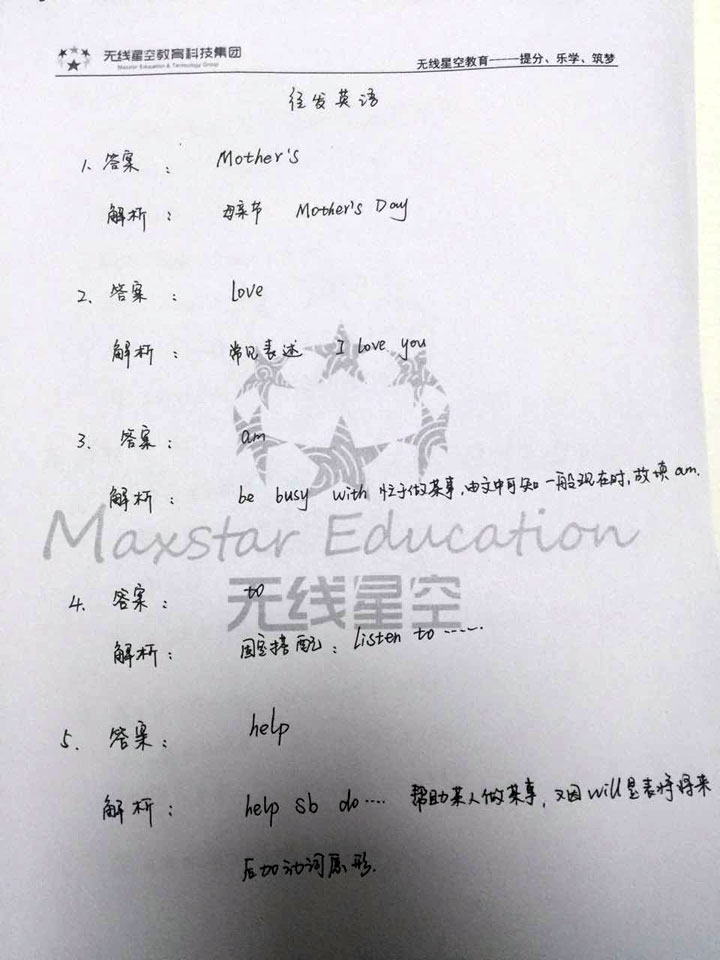 无线星空教育科技集团
Maxstar Education & Technology Group
无线星空教育-----提分、乐学、筑梦
往发英语
1. 答案： Mother's
解析： 母亲节 Mother's Day
2. 答案： Love
解析： 常见表述 I Love you
3. 答案： am
解析： be busy with 忙于做某事,由文中可知一般现在时,故填am.
Maxstar Education
无线星空
4. 答案： to
解析： 固定搭配：listen to ……
5. 答案： help
解析： help sb do…. 帮助某人做某事，又因will是表将将来
后加动词原形.